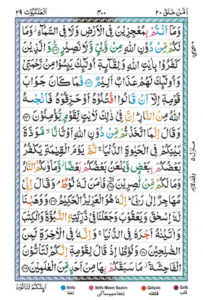 اَمَّنْ خَلَقَ ٢٠
٤٠٠
الْعَنْكَبُوْت ٢٩
وَمَآ اَنْتُمْ بِمُعْجِزِيْنَ فِى الْاَرْضِ وَلَا فِى السَّمَآءِ وَمَا
لَكُمْ مِّنْ دُوْنِ اللّٰهِ مِنْ وَّلِىٍّ وَّلَا نَصِيْرٍ وَالَّذِيْنَ
كَفَرُوْا بِاٰيٰتِ اللّٰهِ وَلِقَآئِهٖٓ اُولٰٓئِكَ يَئِسُوْا مِنْ رَّحْمَتِىْ
وَاُولٰٓئِكَ لَهُمْ عَذَابٌ اَلِيْمٌ فَمَا كَانَ جَوَابَ
قَوْمِهٖٓ اِلَّآ اَنْ قَالُوا اقْتُلُوْهُ اَوْ حَرِّقُوْهُ فَاَنْجٰىهُ
اللّٰهُ مِنَ النَّارِ اِنَّ فِىْ ذٰلِكَ لَاٰيٰتٍ لِّقَوْمٍ يُّؤْمِنُوْنَ
وَقَالَ اِنَّمَا اتَّخَذْتُمْ مِّنْ دُوْنِ اللّٰهِ اَوْثَانًا مَّوَدَّةَ
بَيْنِكُمْ فِى الْحَيٰوةِ الدُّنْيَا ثُمَّ يَوْمَ الْقِيٰمَةِ يَكْفُرُ
بَعْضُكُمْ بِبَعْضٍ وَّيَلْعَنُ بَعْضُكُمْ بَعْضًا وَّمَاْوٰىكُمُ النَّارُ
وَمَا لَكُمْ مِّنْ نّٰصِرِيْنَ فَاٰمَنَ لَهٗ لُوْطٌ وَقَالَ اِنِّىْ
مُهَاجِرٌ اِلٰى رَبِّىْ اِنَّهٗ هُوَ الْعَزِيْزُ الْحَكِيْمُ وَوَهَبْنَا
لَهٗٓ اِسْحٰقَ وَيَعْقُوْبَ وَجَعَلْنَا فِىْ ذُرِّيَّتِهِ النُّبُوَّةَ وَالْكِتٰبَ
وَاٰتَيْنٰهُ اَجْرَهٗ فِى الدُّنْيَا وَاِنَّهٗ فِى الْاٰخِرَةِ لَمِنَ
الصّٰلِحِيْنَ وَلُوْطًا اِذْ قَالَ لِقَوْمِهٖٓ اِنَّكُمْ لَتَاْتُوْنَ
الْفَاحِشَةَ مَا سَبَقَكُمْ بِهَا مِنْ اَحَدٍ مِّنَ الْعٰلَمِيْنَ
Ikhfa
Ikhfa Meem Saakin
Qalqala
Qalb